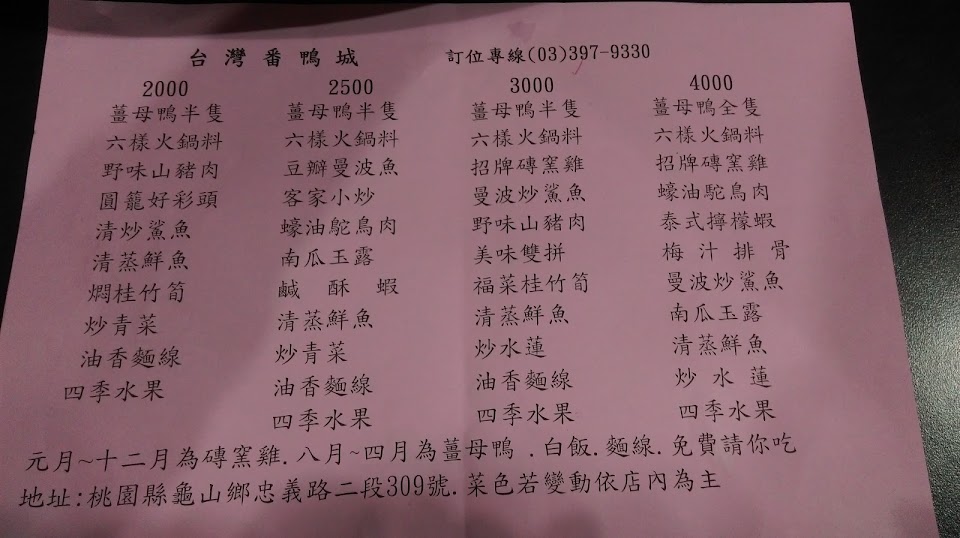 台灣番鴨城 訂位專線(03)397-9330
2000 2500 3000 4000
薑母鴨半隻 薑母鴨半隻 薑母鴨半隻 薑母鴨全隻
六樣火鍋料 六樣火鍋料 六樣火鍋料 六樣火鍋料
野味山豬肉 豆瓣曼波魚 招牌磚窯雞 招牌磚窯雞
圓籠好彩頭 客家小炒 曼波炒鯊魚 蠔油駝鳥肉
清炒鯊魚 蠔油鴕鳥肉 野味山豬肉 泰式檸檬蝦
清蒸鮮魚 南瓜玉露 美味雙拼 梅汁排骨
燜桂竹筍 鹹酥蝦 福菜桂竹筍 曼波炒鯊魚
炒青菜 清蒸鮮魚 清蒸鮮魚 南瓜玉露
油香麵線 炒青菜 炒水蓮 清蒸鮮魚
四季水果 油香麵線 油香麵線 炒水蓮
四季水果 四季水果 四季水果
元月~十二月為磚窯雞.八月~四月為薑母鴨.白飯.麵線.免費請你吃
地址:桃園縣龜山鄉忠義路二段309號.菜色若變動依店內為主